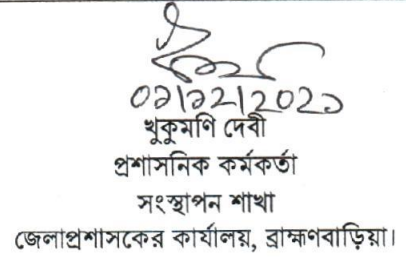 ০১|১২|২০২১
খুকুমণি দেবী
প্রশাসনিক কর্মকর্তা
সংস্থাপন শাখা
জেলাপ্রশাসকের কার্যালয়, ব্রাহ্মণবাড়িয়া।